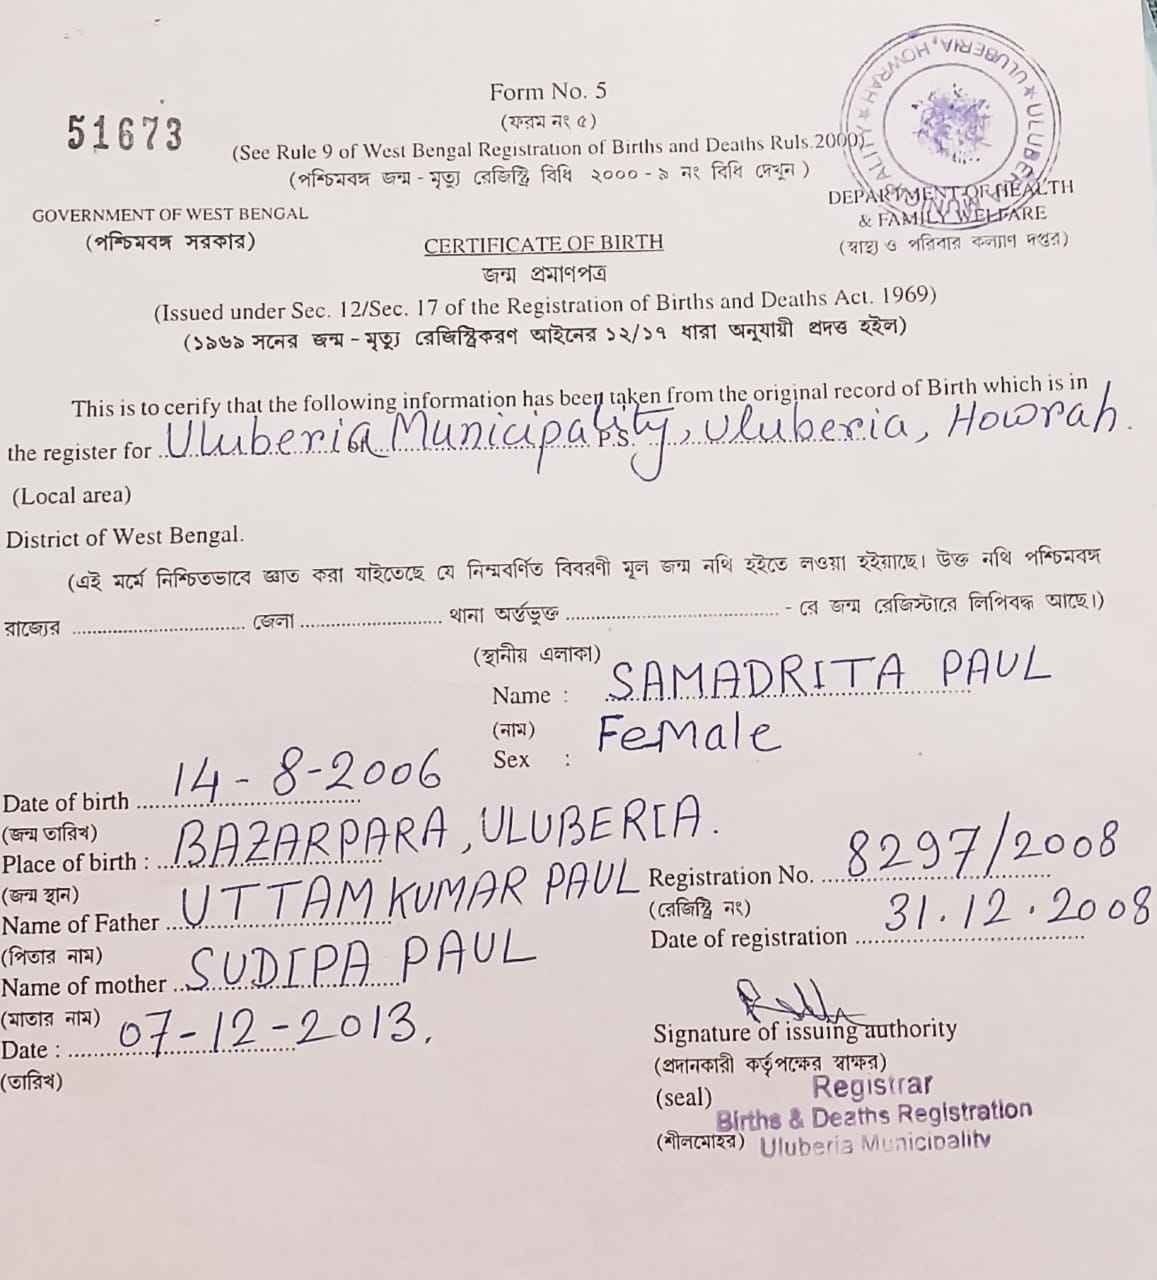 ULUBERIA MUNICIPALITY ★ ULUBERIA, HOWRAH ★
Form No. 5
51673
(ফরম নং ৫)
(See Rule 9 of West Bengal Registration of Births and Deaths Ruls.2000)
(পশ্চিমবঙ্গ জন্ম - মৃত্যু রেজিস্ট্রি বিধি ২০০০ - ৯ নং বিধি দেখুন)
GOVERNMENT OF WEST BENGAL
(পশ্চিমবঙ্গ সরকার)
DEPARTMENT OF HEALTH
& FAMILY WELFARE
(স্বাস্থ্য ও পরিবার কল্যাণ দপ্তর)
CERTIFICATE OF BIRTH
জন্ম প্রমাণপত্র
(Issued under Sec. 12/Sec. 17 of the Registration of Births and Deaths Act. 1969)
(১৯৬৯ সনের জন্ম - মৃত্যু রেজিস্ট্রিকরণ আইনের ১২/১৭ ধারা অনুযায়ী প্রদত্ত হইল)
This is to cerify that the following information has been taken from the original record of Birth which is in
the register for Uluberia Municipality, P.S. Uluberia, Howrah.
(Local area)
District of West Bengal.
(এই মর্মে নিশ্চিতভাবে জ্ঞাত করা যাইতেছে যে নিম্নবর্ণিত বিবরণী মূল জন্ম নথি হইতে লওয়া হইয়াছে। উক্ত নথি পশ্চিমবঙ্গ
রাজ্যের .............................. জেলা ......................... থানা অর্ন্তভুক্ত ..................................... - রে জন্ম রেজিস্টারে লিপিবদ্ধ আছে।)
(স্থানীয় এলাকা)
Name : SAMADRITA PAUL
(নাম)
Sex : Female
Date of birth 14-8-2006
(জন্ম তারিখ)
Place of birth : BAZARPARA, ULUBERIA.
(জন্ম স্থান)
Registration No. 8297/2008
(রেজিস্ট্রি নং)
Name of Father UTTAM KUMAR PAUL
(পিতার নাম)
Date of registration 31.12.2008
Name of mother SUDIPA PAUL
(মাতার নাম)
Date : 07-12-2013.
(তারিখ)
Signature of issuing authority
(প্রদানকারী কর্তৃপক্ষের স্বাক্ষর)
(seal)
Registrar
Births & Deaths Registration
(শীলমোহর)
Uluberia Municipality